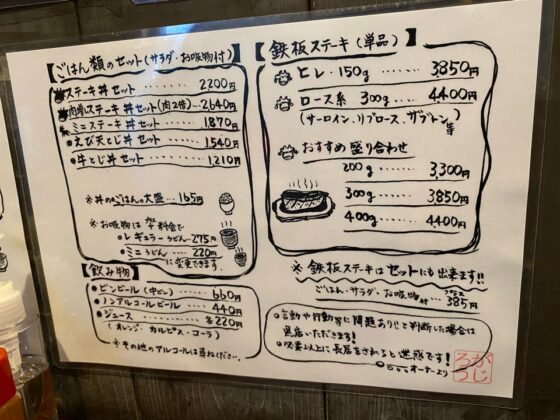 【ごはん類のセット(サラダ・お吸物付)】
ステーキ丼セット……2200円
肉増しステーキ丼セット(肉2倍)…2,640円
ミニステーキ丼セット……1,870円
●えび天とじ丼セット……1,540円
●牛とじ丼セット……1,210円
※丼のごはんの大盛…165円
※お吸物は 料金で
●レギュラーうどん…275円
●ミニうどん……220円
に変更できます。
【飲み物】
●ビンビール(中ビン)……660円
●ノンアルコールビール……440円
●ジュース……各220円
(オレンジ・カルピス・コーラ)
※その他のアルコールは尋ねください。
【鉄板ステーキ(単品)】
ヒレ・150g……3,850円
ロース系 300g……4,400円
(サーロイン、リブロース、ザブトン等)
おすすめ盛り合わせ
200g……3,300円
300g……3,850円
400g……4,400円
※鉄板ステーキはセットにも出来ます!!
ごはん・サラダ・お吸物付…プラス385円
●言動や行動等に問題あり!!と判断した場合は
退店いただきます!
●必要以上に長居をされると迷惑です!
オーナーより
がじろう